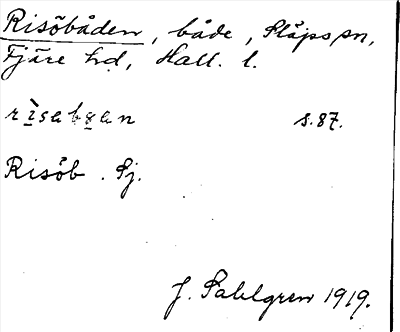 Risöbåden, både, Släps sn,
Fjäre hd, Hall. l.
rìsabɷan s.87.
Risöb. Sj.
J. Sahlgren 1919.